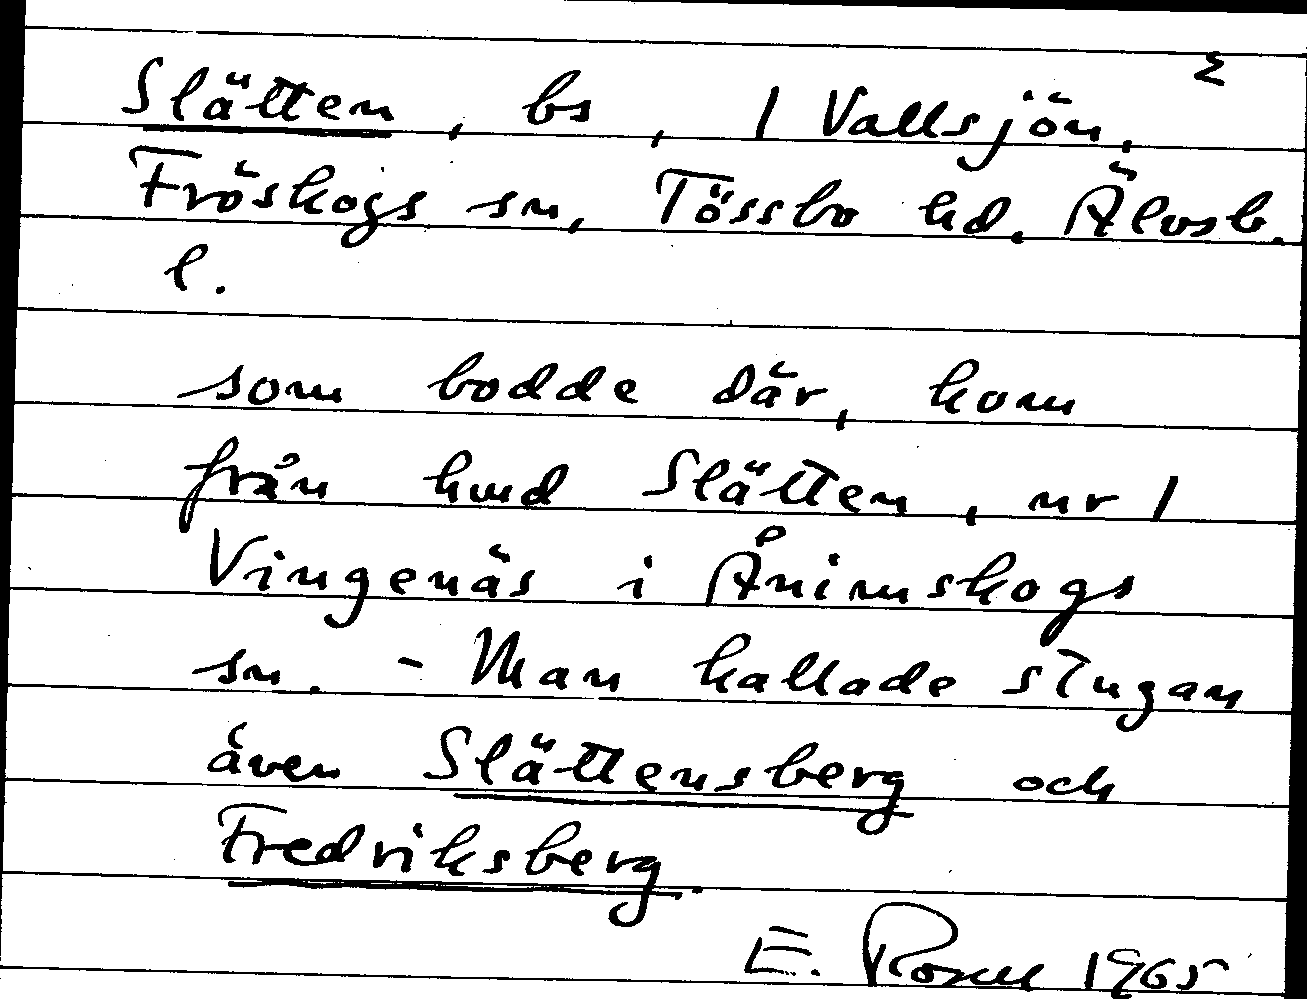 2
Slätten, bs, 1 Vallsjön,
Fröskogs sn, Tössbo hd. Älvsb.
l.
som bodde där, kom
från hmd Slätten, nr 1
Vingenäs i Ånimskogs
sn. - Man kallade stugan
även Slättensberg och
Fredriksberg.
E. Rosell 1965